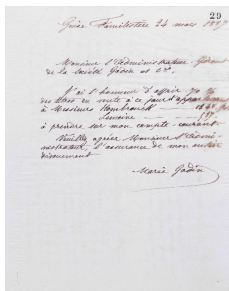 29
Guise Familistère 24 mars 1897
Monsieur l'Administrateur-Gérant
de la Société Godin et Cie.
J'ai l'honneur d'offrir
des titres en suite à ce jour
à Messieurs
Lemoine
à prendre sur mon compte-courant.
Veuillez agréer Monsieur l'Admi-
nistrateur, l'assurance de mon entier
dévouement
Marie Godin